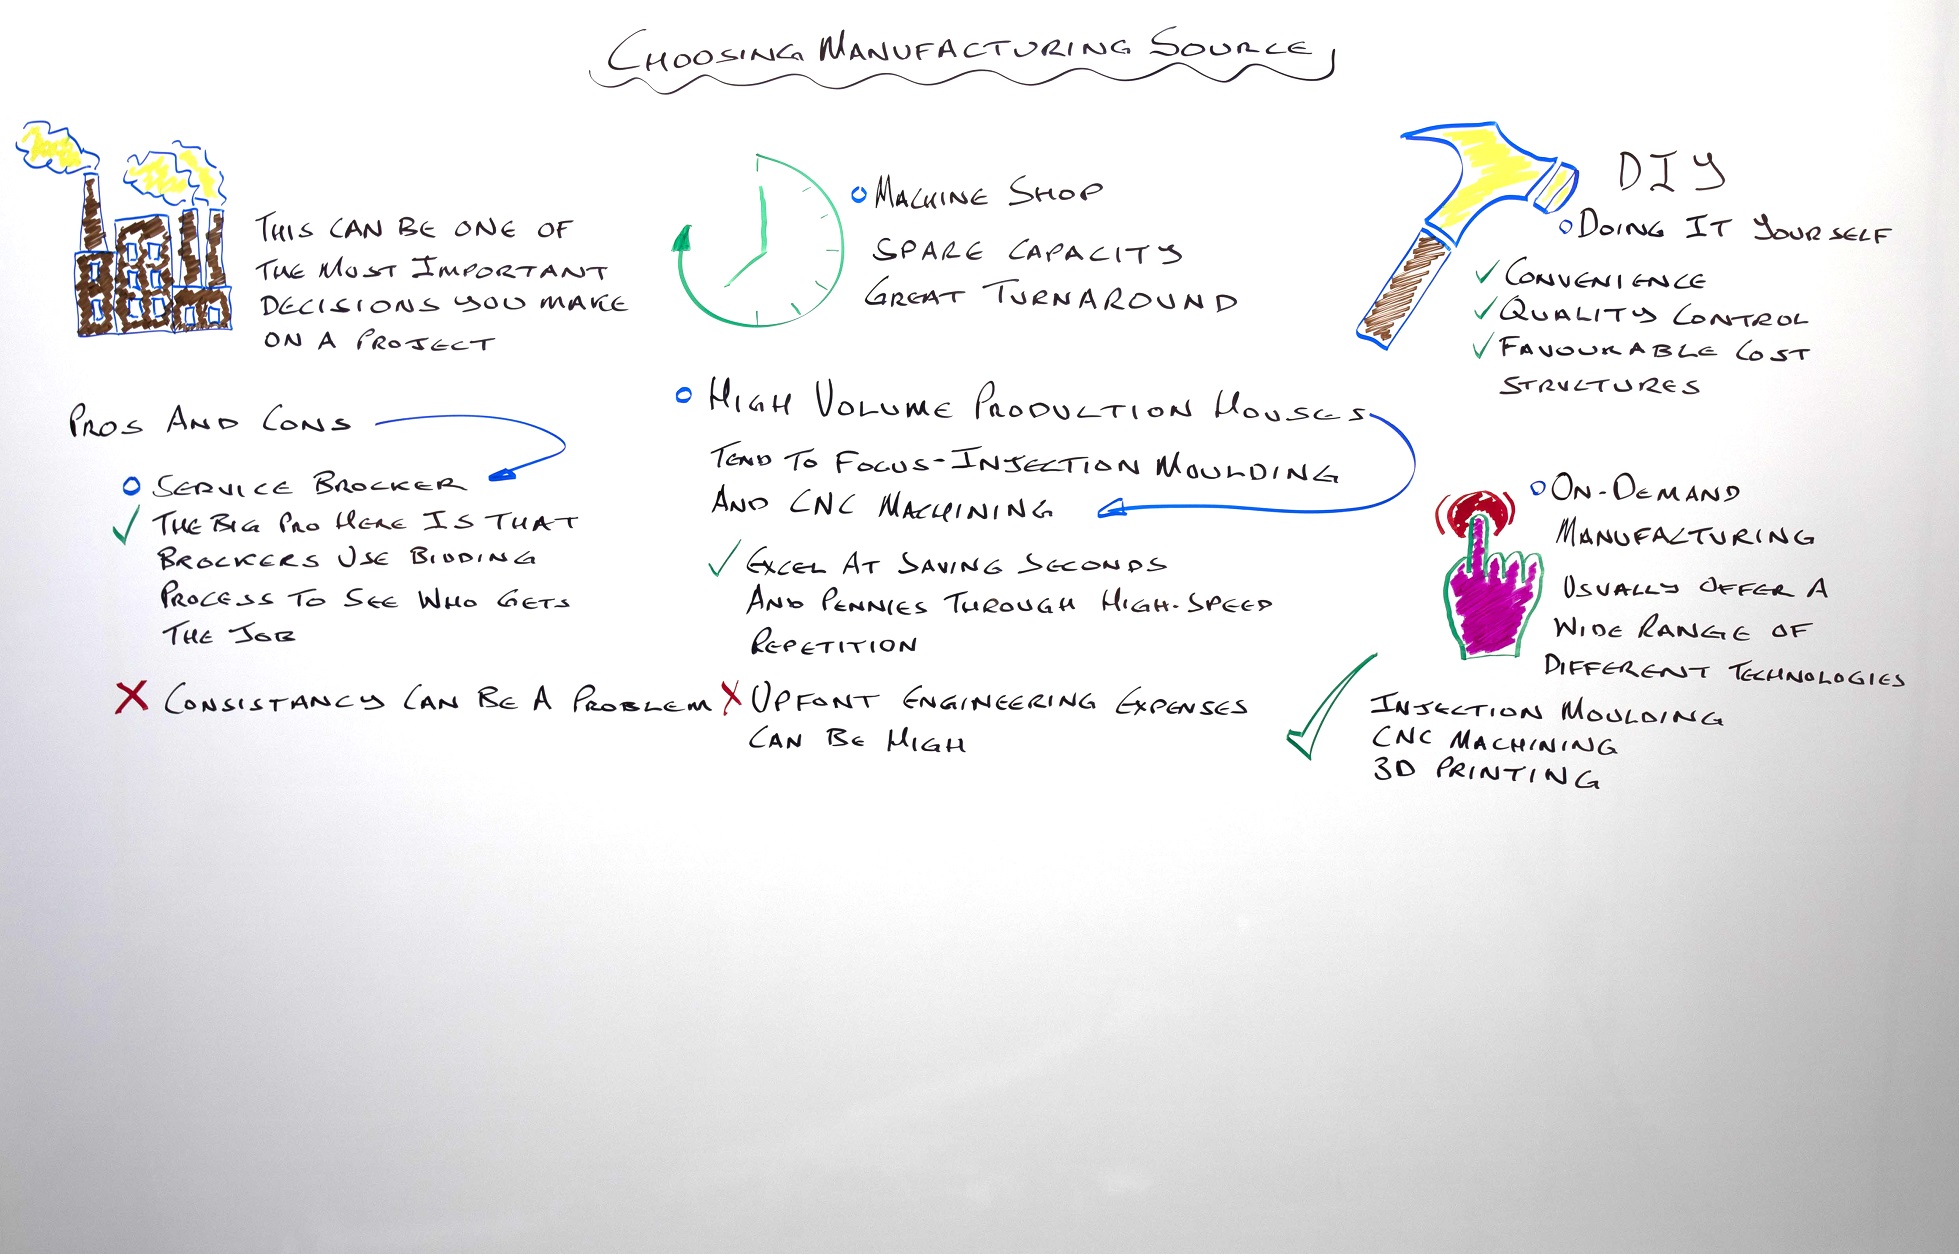 CHOOSING MANUFACTURING SOURCE
THIS CAN BE ONE OF
THE MOST IMPORTANT
DECISIONS YOU MAKE
ON A PROJECT
PROS AND CONS
SERVICE BROCKER
THE BIG PRO HERE IS THAT
BROCKERS USE BIDDING
PROCESS TO SEE WHO GETS
THE JOB
CONSISTANCY CAN BE A PROBLEM
MACHINE SHOP
SPARE CAPACITY
GREAT TURNAROUND
HIGH VOLUME PRODUCTION HOUSES
TEND TO FOCUS-INJECTION MOULDING
AND CNC MACHINING
EXCEL AT SAVING SECONDS
AND PENNIES THROUGH HIGH-SPEED
REPETITION
UPFONT ENGINEERING EXPENSES
CAN BE HIGH
DIY
DOING IT YOURSELF
CONVENIENCE
QUALITY CONTROL
FAVOURABLE COST
STRUCTURES
ON-DEMAND
MANUFACTURING
USUALLY OFFER A
WIDE RANGE OF
DIFFERENT TECHNOLOGIES
INJECTION MOULDING
CNC MACHINING
3D PRINTING